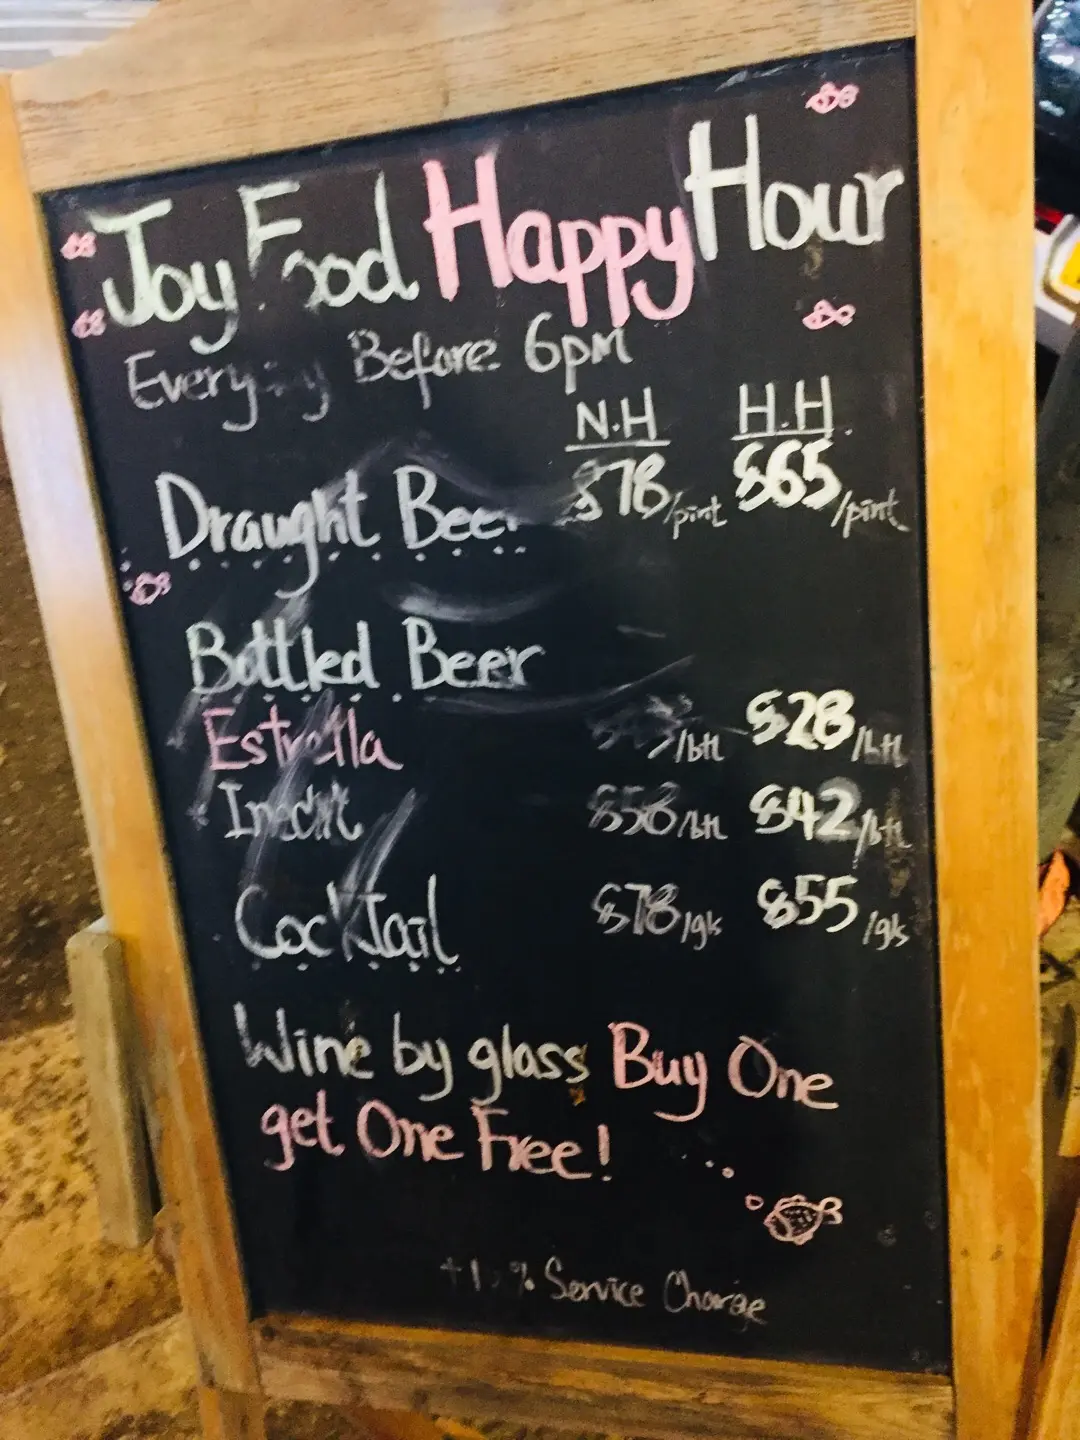 Joy Food Happy Hour
Before 6pm
N.H H.H
Draught Beer $78/pint $65/pint
Bottled Beer
Estrella /btl $28/btl
Inedit $58/btl $42/btl
Cocktail $78/gls $55/gls
Wine by glass Buy One
get One Free!
Service Charge